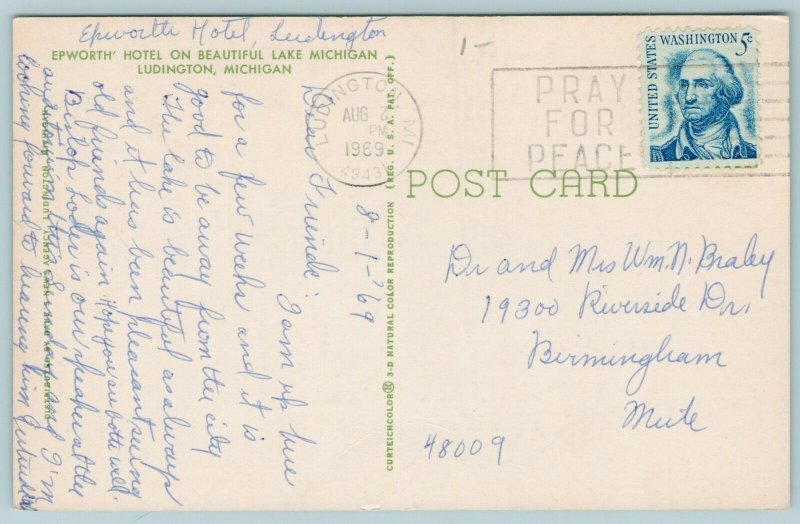 Epworth Hotel, Ludington
EPWORTH' HOTEL ON BEAUTIFUL LAKE MICHIGAN
LUDINGTON, MICHIGAN
8-1-'69
Dear Friends: I am up here
for a few weeks and it is
good to be away from the city
The lake is beautiful as always
and it has been pleasant seeing
old friends again. Hope you are both well.
Bishop Loder is our speaker at the
this and I'm
looking forward to hearing him Gertrude
DISTRIBUTED BY NEWS AGENCY, LUDINGTON, MICHIGAN
CURTEICHCOLOR® 3-D NATURAL COLOR REPRODUCTION (REG. U. S. A. PAT. OFF.)
LUDINGTON, MI
AUG
PM
1969
4943
PRAY
FOR
PEACE
UNITED STATES WASHINGTON 5c
1-
POST CARD
Dr and Mrs Wm. N. Braley
19300 Riverside Dr,
Birmingham
Mich
48009